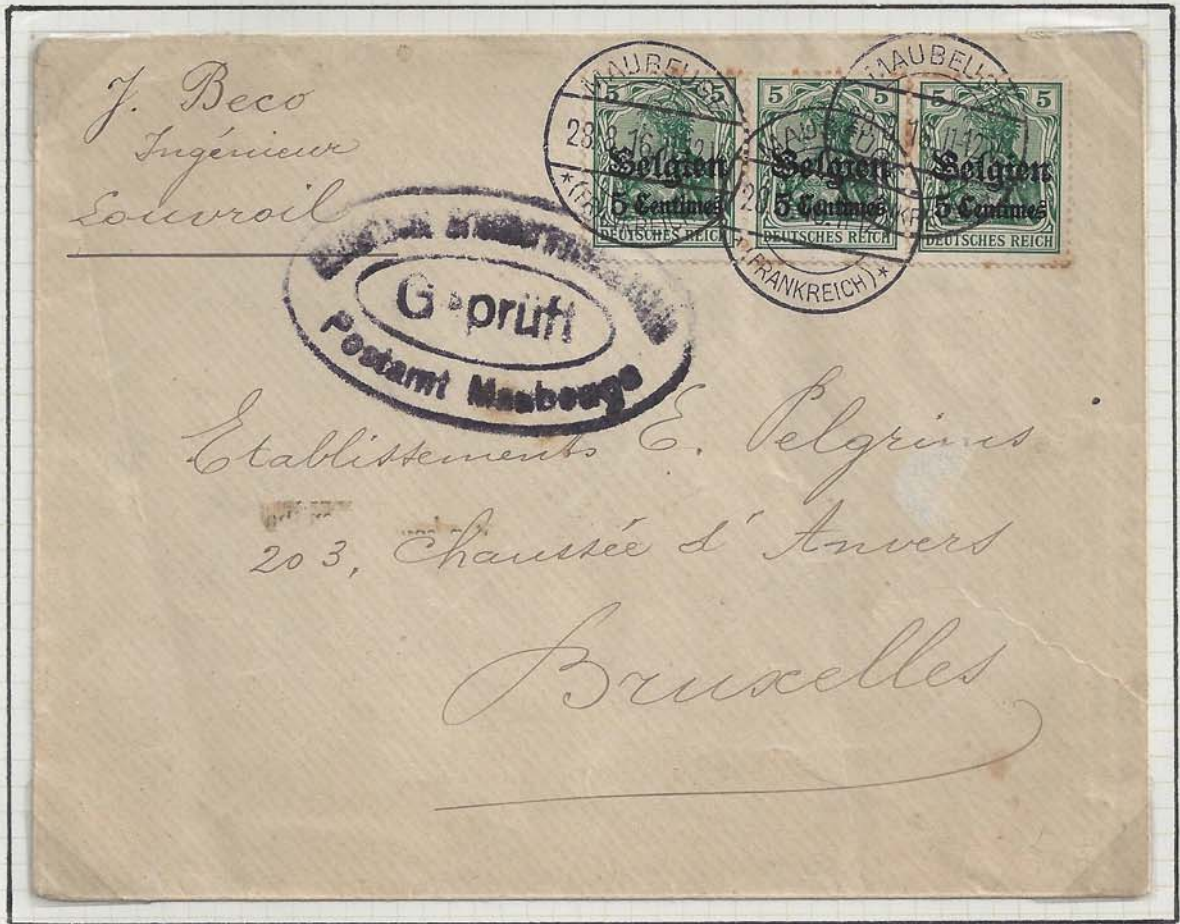 J. Beco
Ingénieur
Louvroil
MAUBEUGE
28.8.16 11-12
*(FRANKREICH)*
5 5
Belgien
5 Centimes
DEUTSCHES REICH
5 5
Belgien
5 Centimes
DEUTSCHES REICH
MAUBEUGE
11-12
5 5
Belgien
5 Centimes
DEUTSCHES REICH
(FRANKREICH)*
Geprüft
Postamt Maubeuge
Etablissements E. Pelgrims
203, Chaussée d'Anvers
Bruxelles